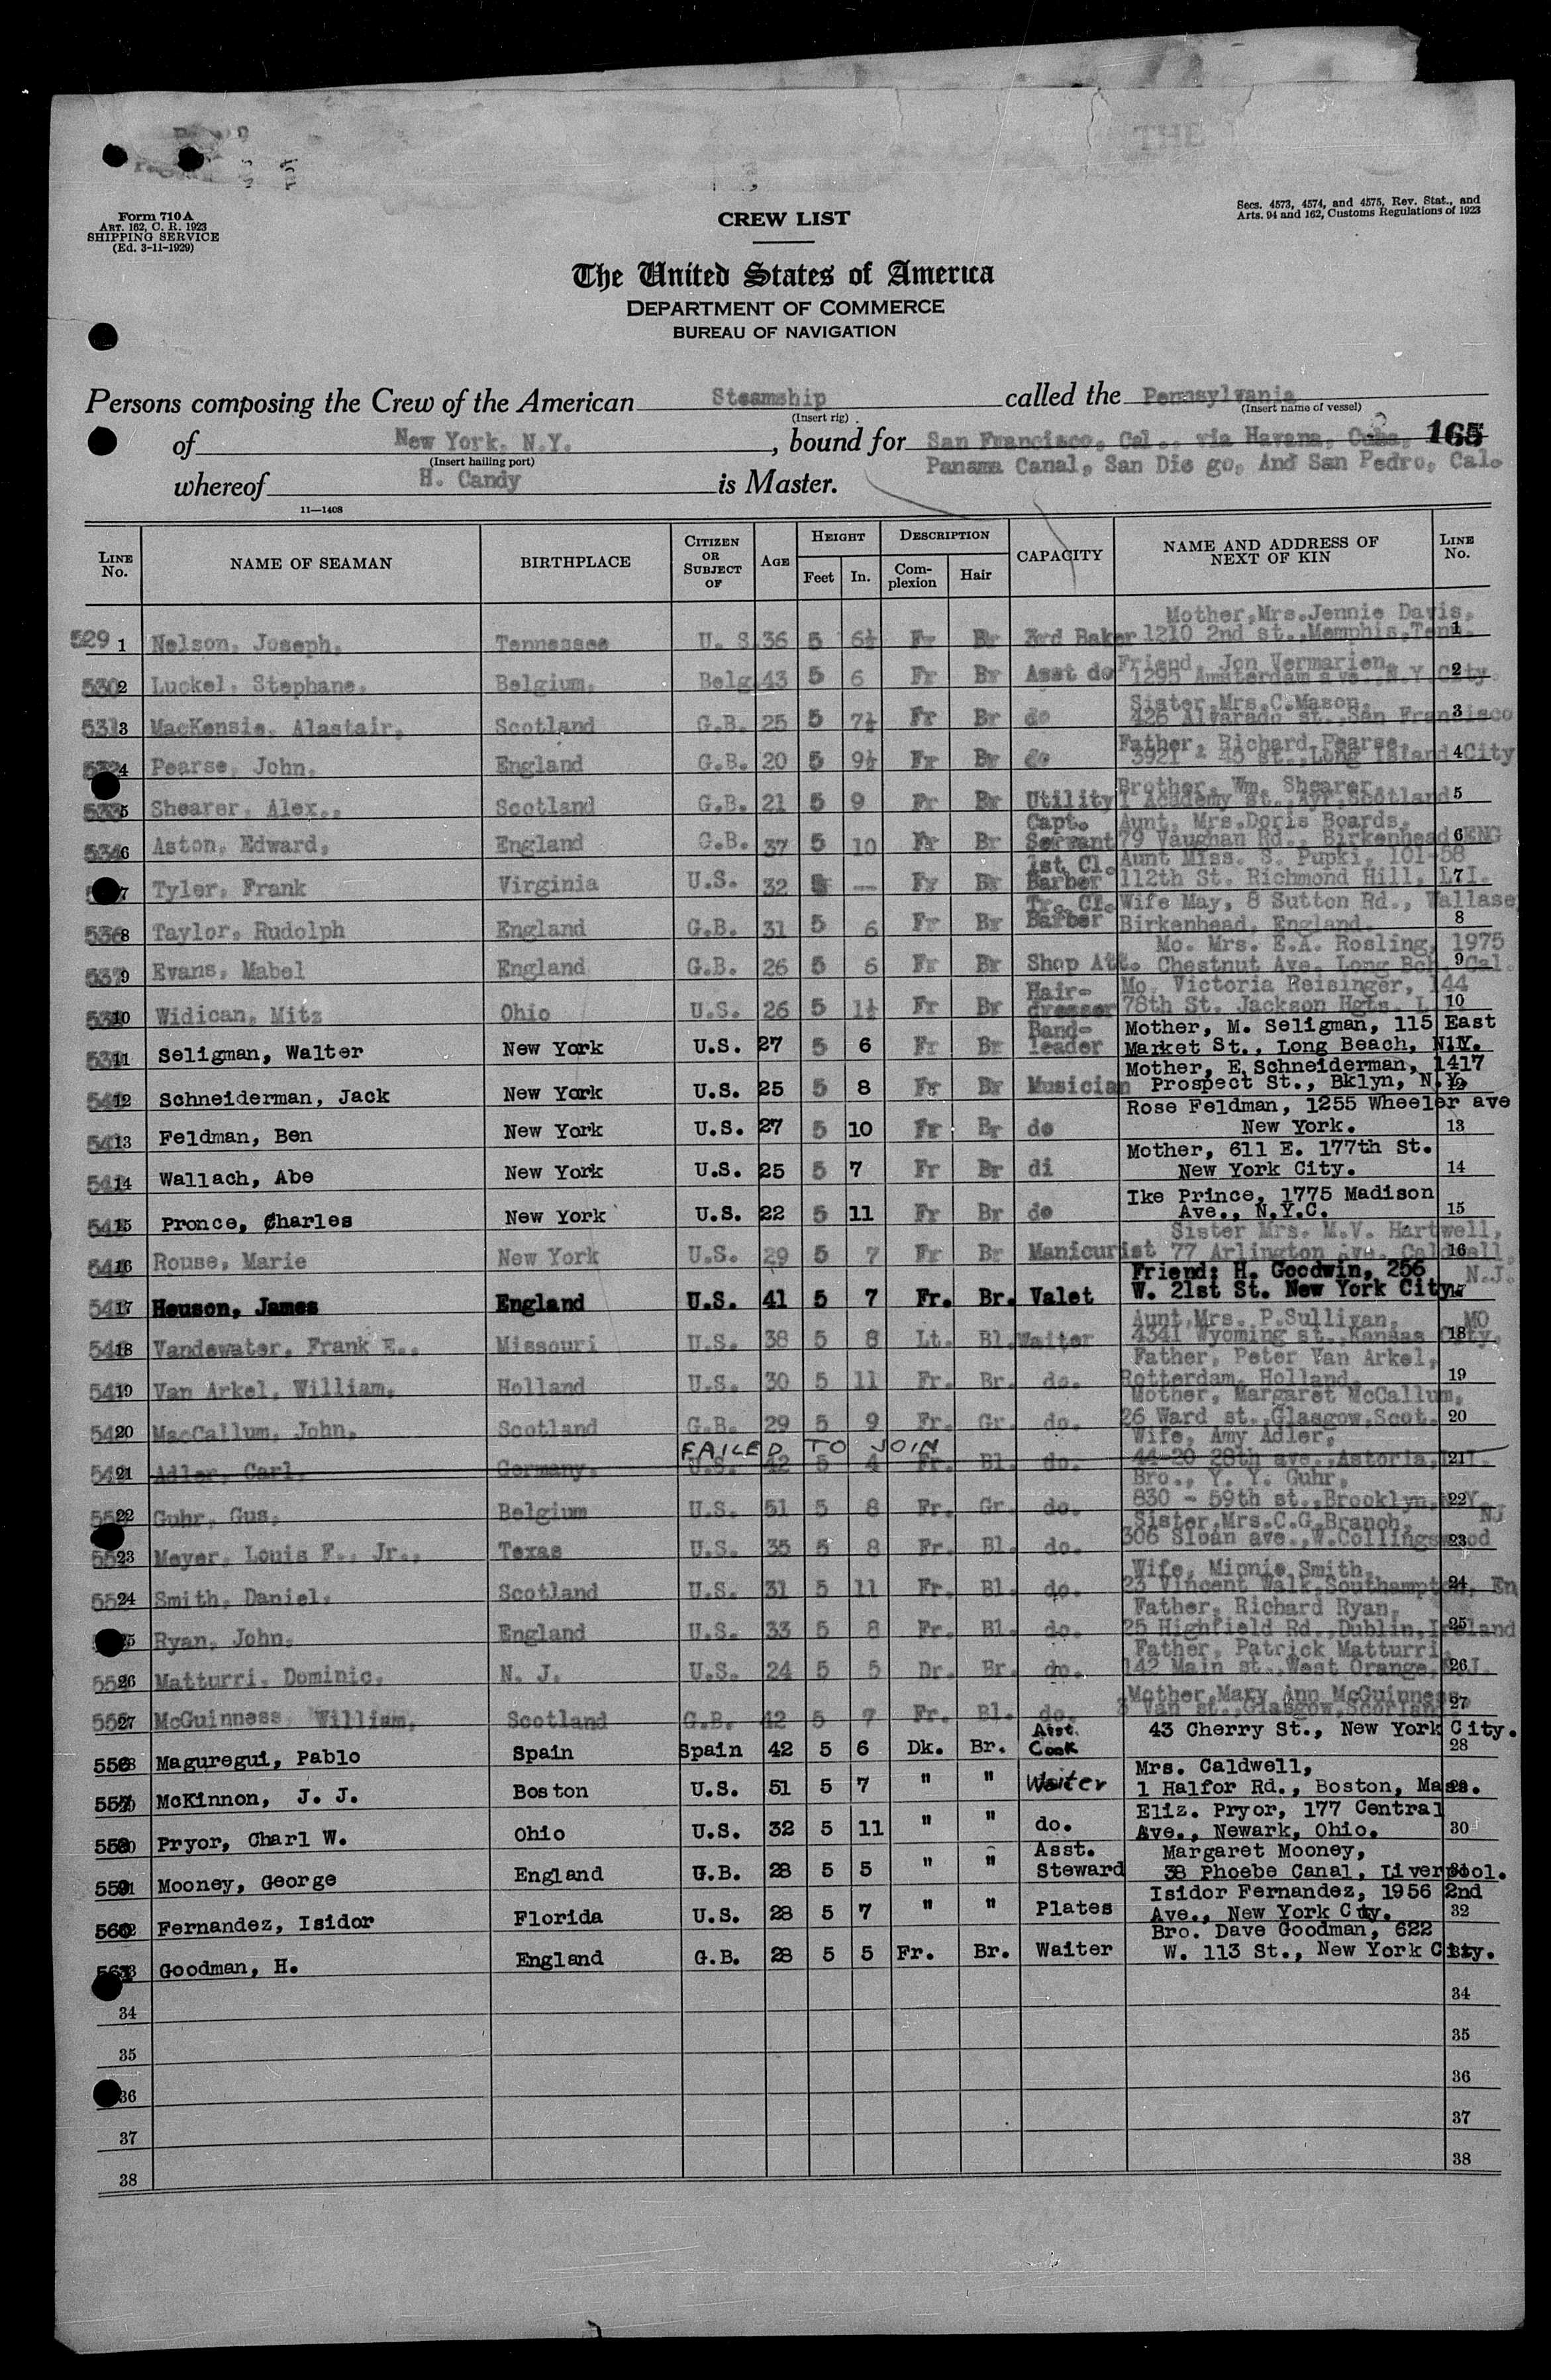 Form 710 A
ART. 162, C. R. 1923
SHIPPING SERVICE
(Ed. 3-11-1929)
CREW LIST
Secs. 4573, 4574, and 4575, Rev. Stat., and
Arts. 94 and 162, Customs Regulations of 1923
The United States of America
DEPARTMENT OF COMMERCE
BUREAU OF NAVIGATION
Persons composing the Crew of the American Steamship called the Pennsylvania
(Insert rig) (Insert name of vessel)
of New York, N.Y., bound for San Francisco, Cal., via Havana, Cuba, 165
(Insert hailing port) Panama Canal, San Die go, And San Pedro, Cal.
whereof H. Candy is Master.
11—1408
LINE No. NAME OF SEAMAN BIRTHPLACE CITIZEN OR SUBJECT OF AGE HEIGHT Feet In. DESCRIPTION Complexion Hair CAPACITY NAME AND ADDRESS OF NEXT OF KIN LINE No.
529 1 Nelson, Joseph, Tennessee U. S. 36 5 6½ Fr Br 3rd Baker Mother, Mrs. Jennie Davis, 1210 2nd st., Memphis, Tenn. 1
530 2 Luckel, Stephane, Belgium, Belg. 43 5 6 Fr Br Asst do Friend, Jon Vermarien, 1295 Amsterdam ave., N.Y. City. 2
531 3 MacKensie, Alastair, Scotland G.B. 25 5 7½ Fr Br do Sister, Mrs. C. Mason, 426 Alvarado st., San Francisco 3
532 4 Pearse, John, England G.B. 20 5 9½ Fr Br do Father, Richard Pearse, 3921 - 45 st., Long Island City 4
533 5 Shearer, Alex., Scotland G.B. 21 5 9 Fr Br Utility Brother, Wm. Shearer, 1 Academy st., Ayr, Scotland 5
534 6 Aston, Edward, England G.B. 37 5 10 Fr Br Capt. Servant Aunt, Mrs. Doris Boards, 79 Vaughan Rd., Birkenhead ENG 6
7 Tyler, Frank Virginia U.S. 32 — Fr Br 1st Cl. Barber Aunt Miss. S. Pupki, 101-58 112th St. Richmond Hill, L.I. 7
536 8 Taylor, Rudolph England G.B. 31 5 6 Fr Br Tr. Cl. Barber Wife May, 8 Sutton Rd., Wallase, Birkenhead, England. 8
537 9 Evans, Mabel England G.B. 26 5 6 Fr Br Shop Att. Mo. Mrs. E.A. Rosling, 1975 Chestnut Ave. Long Bch. Cal. 9
538 10 Widican, Mitz Ohio U.S. 26 5 1½ Fr Br Hair-dresser Mo. Victoria Reisinger, 144 78th St. Jackson Hgts. L. 10
539 11 Seligman, Walter New York U.S. 27 5 6 Fr Br Band-leader Mother, M. Seligman, 115 East Market St., Long Beach, N.Y. 11
540 12 Schneiderman, Jack New York U.S. 25 5 8 Fr Br Musician Mother, E. Schneiderman, 1417 Prospect St., Bklyn, N.Y. 12
541 13 Feldman, Ben New York U.S. 27 5 10 Fr Br do Rose Feldman, 1255 Wheeler ave New York. 13
542 14 Wallach, Abe New York U.S. 25 5 7 Fr Br di Mother, 611 E. 177th St. New York City. 14
543 15 Pronce, Charles New York U.S. 22 5 11 Fr Br do Ike Prince, 1775 Madison Ave., N.Y.C. 15
544 16 Rouse, Marie New York U.S. 29 5 7 Fr Br Manicurist Sister Mrs. M.V. Hartwell, 77 Arlington Ave. Caldwell, N.J. 16
545 17 Heuson, James England U.S. 41 5 7 Fr. Br. Valet Friend: H. Goodwin, 256 W. 21st St. New York City. 17
546 18 Vandewater, Frank E., Missouri U.S. 38 5 8 Lt. Bl. Waiter Aunt, Mrs. P. Sullivan, 4341 Wyoming st., Kansas City, MO 18
547 19 Van Arkel, William, Holland U.S. 30 5 11 Fr. Br. do. Father, Peter Van Arkel, Rotterdam, Holland. 19
548 20 MacCallum, John, Scotland G.B. 29 5 9 Fr. Gr. do. Mother, Margaret McCallum, 26 Ward st., Glasgow, Scot. 20
FAILED TO JOIN
549 21 Adler, Carl, Germany, U.S. 42 5 4 Fr. Bl. do. Wife, Amy Adler, 44-20 28th ave., Astoria, L.I. 21
550 22 Guhr, Gus, Belgium U.S. 51 5 8 Fr. Gr. do. Bro., Y. Y. Guhr, 830 - 59th st., Brooklyn, N.Y. 22
551 23 Meyer, Louis F., Jr., Texas U.S. 35 5 8 Fr. Bl. do. Sister, Mrs. C.G. Branch, 306 Sloan ave., W. Collingswood NJ 23
552 24 Smith, Daniel, Scotland U.S. 31 5 11 Fr. Bl. do. Wife, Minnie Smith, 23 Vincent Walk, Southampton, En 24
25 Ryan, John, England U.S. 33 5 8 Fr. Bl. do. Father, Richard Ryan, 25 Highfield Rd., Dublin, Ireland 25
554 26 Matturri, Dominic, N. J. U.S. 24 5 5 Dr. Br. do. Father, Patrick Matturri, 142 Main st., West Orange, N.J. 26
555 27 McGuinness, William, Scotland G.B. 42 5 7 Fr. Bl. do. Mother, Mary Ann McGuinness, 3 Van st., Glasgow, Scorland 27
556 28 Maguregui, Pablo Spain Spain 42 5 6 Dk. Br. Asst. Cook 43 Cherry St., New York City. 28
557 29 McKinnon, J. J. Boston U.S. 51 5 7 " " Waiter Mrs. Caldwell, 1 Halfor Rd., Boston, Mass. 29
558 30 Pryor, Charl W. Ohio U.S. 32 5 11 " " do. Eliz. Pryor, 177 Central Ave., Newark, Ohio. 30
559 31 Mooney, George England G.B. 28 5 5 " " Asst. Steward Margaret Mooney, 38 Phoebe Canal, Liverpool. 31
560 32 Fernandez, Isidor Florida U.S. 28 5 7 " " Plates Isidor Fernandez, 1956 2nd Ave., New York City. 32
561 33 Goodman, H. England G.B. 28 5 5 Fr. Br. Waiter Bro. Dave Goodman, 622 W. 113 St., New York City. 33
34 34
35 35
36 36
37 37
38 38